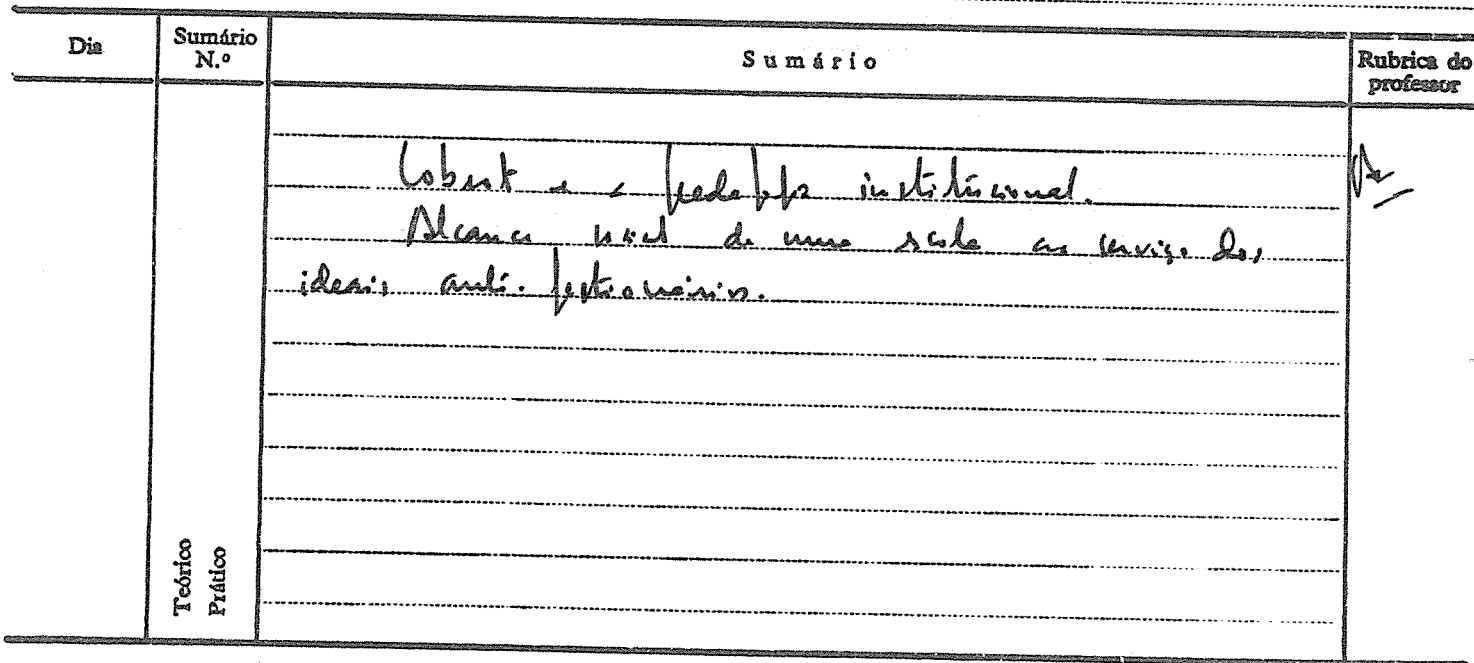 Dia
Sumário N.º
Sumário
Rubrica do professor
Lobrot e a pedagogia institucional.
Alcance social de uma escola ao serviço dos
ideais auto-gestionários.
Teórico
Prático